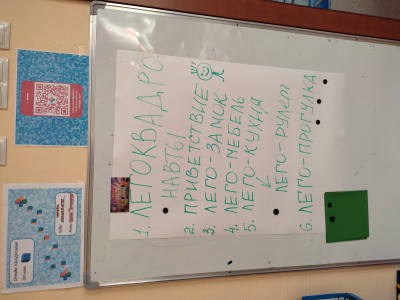 1. ЛЕГОКВАДРО
НАВТЫ
2. ПРИВЕТСТВИЕ
3. ЛЕГО-ЗАМОК
4. ЛЕГО-МЕБЕЛЬ
5. ЛЕГО-КУХНЯ
ЛЕГО-РУЛЕТ
6. ЛЕГО-ПРОГУЛКА